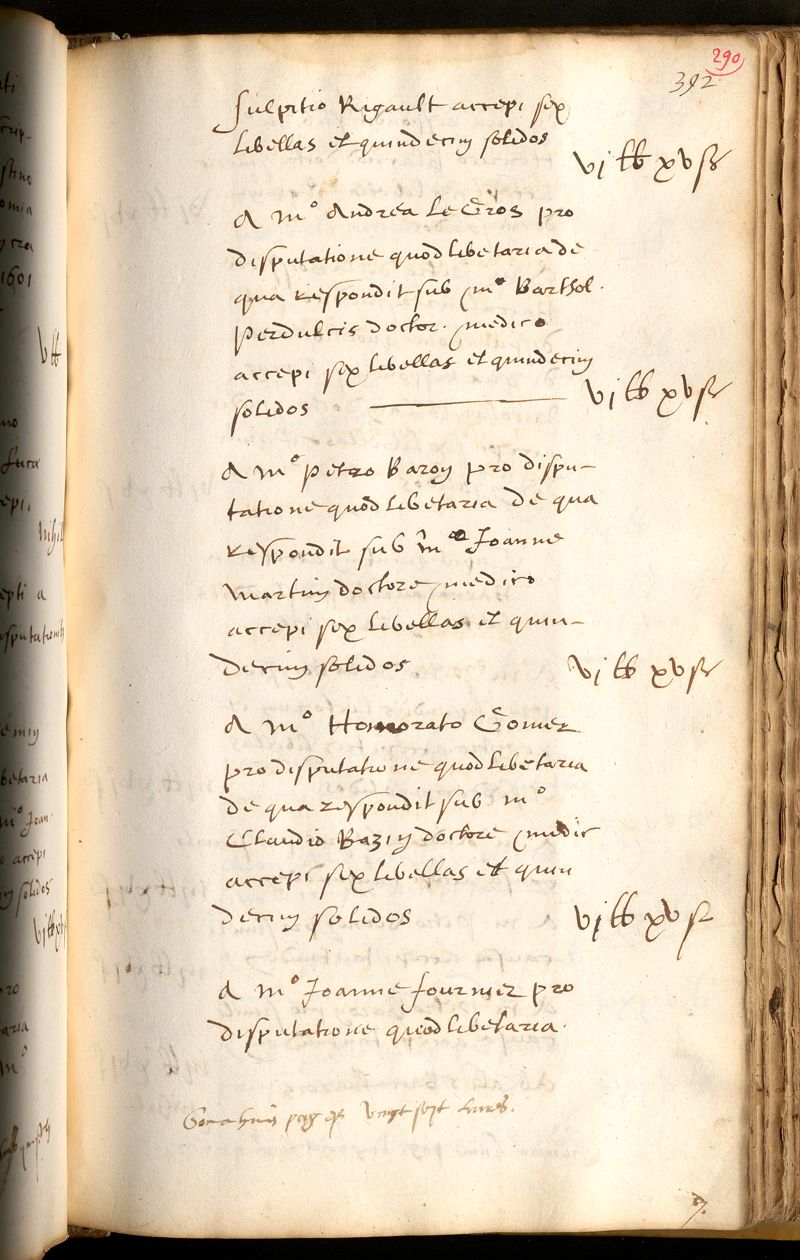 290
392
Sulpitio Rigault accepi sex
libellas et quindecim solidos
vj lb xv s
A mo Andrea le Gros pro
disputatione quodlibetaria de
qua respondit sub mo Barthol.
Perdulcis doctor. medico
accepi sex libellas et quindecim
solidos
vj lb xv s
A mo Petro Baron pro dispu-
tatione quodlibetaria de qua
respondit sub mo Joanne
Martin doctore medico
accepi sex libellas et quin-
decim solidos
vj lb xv s
A mo Honorato Gomer
pro disputatione quodlibetaria
de qua respondit sub mo
Claudio Bazin doctore medic
accepi sex libellas et quin
decim solidos
vj lb xv s
A mo Joanne Fournier pro
disputatione quodlibetaria.
vingt sept livres.